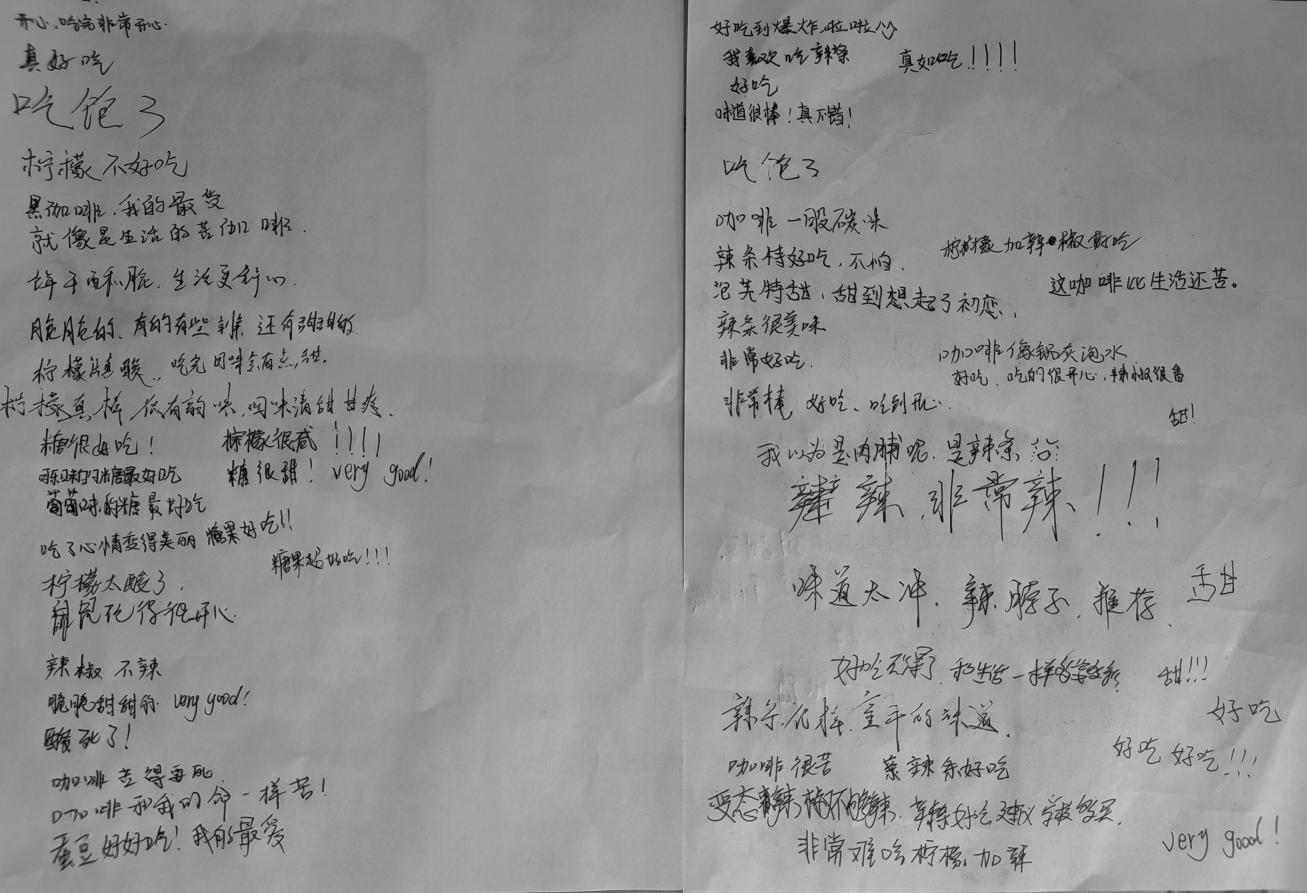 开心,吃完非常开心.
真好吃
吃饱了
柠檬不好吃
黑咖啡.我的最爱
就像是生活的苦咖啡.
生活更舒心
脆脆的、有的有些辣.还有甜甜的
柠檬酸..吃完回味有点甜.
柠檬真棒 很有韵味,回味清甜甘爽.
糖很好吃! 柠檬很咸!!!!
味的糖最好吃 糖很甜! very good!
葡萄味的糖最好吃
吃了心情变得美丽 糖果好吃!!
糖果超好吃!!!
柠檬太酸了.
吃得很开心.
辣椒不辣
脆脆甜甜的 very good!
酸死了!
咖啡苦得要死
咖啡和我的命一样苦!
蚕豆好好吃!我的最爱
好吃到爆炸,啦啦
我喜欢吃辣条 真好吃!!!!
好吃
味道很棒!真不错!
吃饱了
咖啡一股碳味
辣条特好吃,不怕. 柠檬加辣椒好吃
泡芙特甜,甜到想起了初恋, 这咖啡比生活还苦。
辣条很美味
非常好吃. 咖啡像锅灰泡水
好吃.吃的很开心,辣椒很香
非常棒 好吃、吃到 甜!
我以为是肉脯呢.是辣条
辣,非常辣!!!
味道太冲.辣脖子.推荐. 甜
好吃 和生活一样 甜!!!
辣条很棒.童年的味道. 好吃
好吃 好吃!!!
咖啡很苦 好吃
变态 不够辣. 好吃 建议学校
非常难吃柠檬加辣 very good!